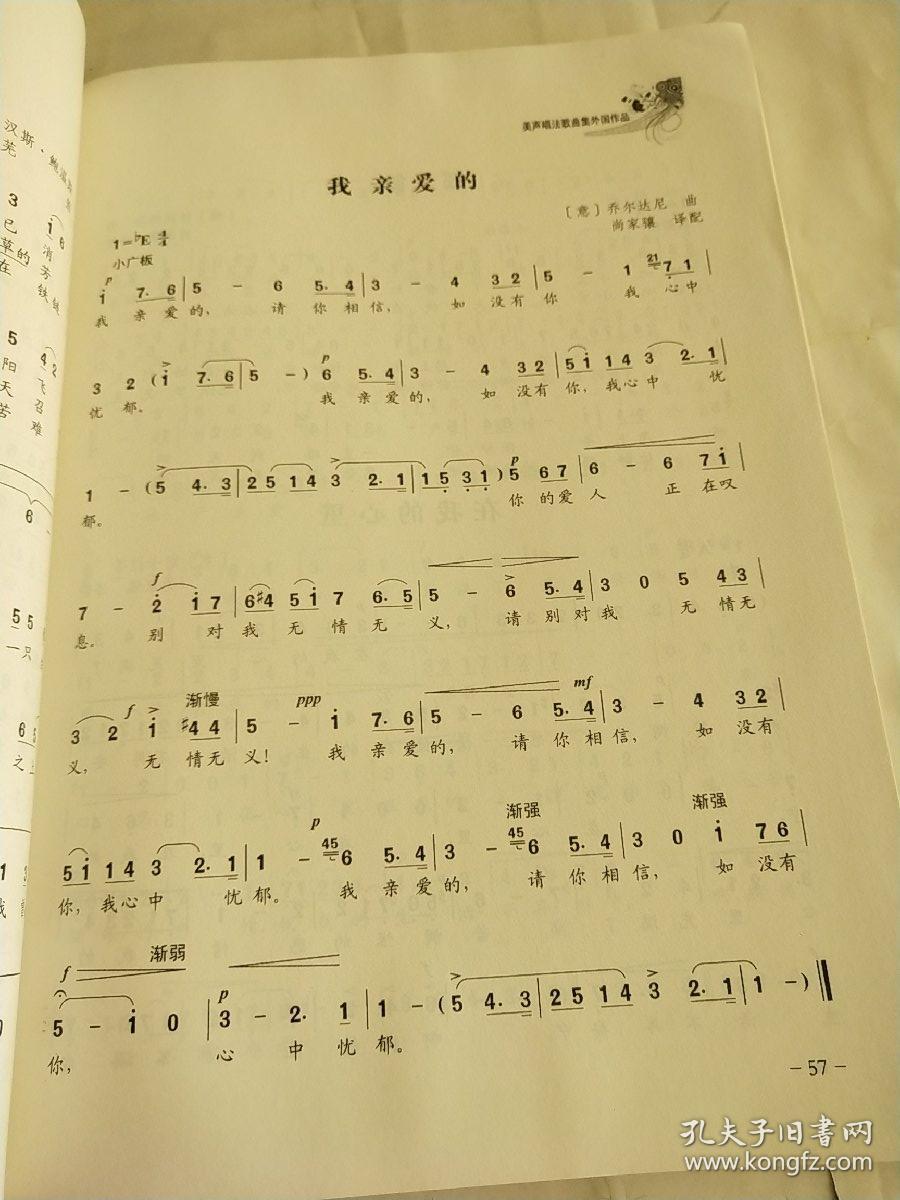 汉斯·鲍
芜
3 i 6
已 消
草的 芳
在 铁链
5 4 2
阳 飞
天 召
苦 难
6
5 5
一只
6 5
之上
1 3
我
美声唱法歌曲集外国作品
我亲爱的
[意] 乔尔达尼 曲
尚家骧 译配
1=♭E 4/4
小广板
p
i 7. 6 | 5 - 6 5. 4 | 3 - 4 3 2 | 5 - 1 21 7 1 |
我 亲爱的, 请你相信, 如没有你 我心中
p
3 2 ( i 7. 6 | 5 - ) 6 5. 4 | 3 - 4 3 2 | 5 i 1 4 3 2. 1 |
忧郁。 我亲爱的, 如没有你,我心中 忧
p
1 - ( 5 4. 3 | 2 5 1 4 3 2. 1 | 1 5 3 1 ) 5 6 7 | 6 - 6 7 i |
郁。 你的爱人 正在叹
f
7 - 2 i 7 | 6 #4 5 i 7 6. 5 | 5 - 6 5. 4 | 3 0 5 4 3 |
息。 别 对我无情无 义, 请别对我 无情无
f 渐慢 ppp mf
3 2 i #4 4 | 5 - i 7. 6 | 5 - 6 5. 4 | 3 - 4 3 2 |
义, 无 情无义! 我 亲爱的, 请你相信, 如没有
p 渐强 渐强
5 i 1 4 3 2. 1 | 1 - 45 6 5. 4 | 3 - 45 6 5. 4 | 3 0 i 7 6 |
你,我心中 忧郁。 我亲爱的, 请你相信, 如没有
f 渐弱 p
5 - i 0 | 3 - 2. 1 | 1 - ( 5 4. 3 | 2 5 1 4 3 2. 1 | 1 - )
你, 心 中忧郁。
- 57 -
孔夫子旧书网
www.kongfz.com